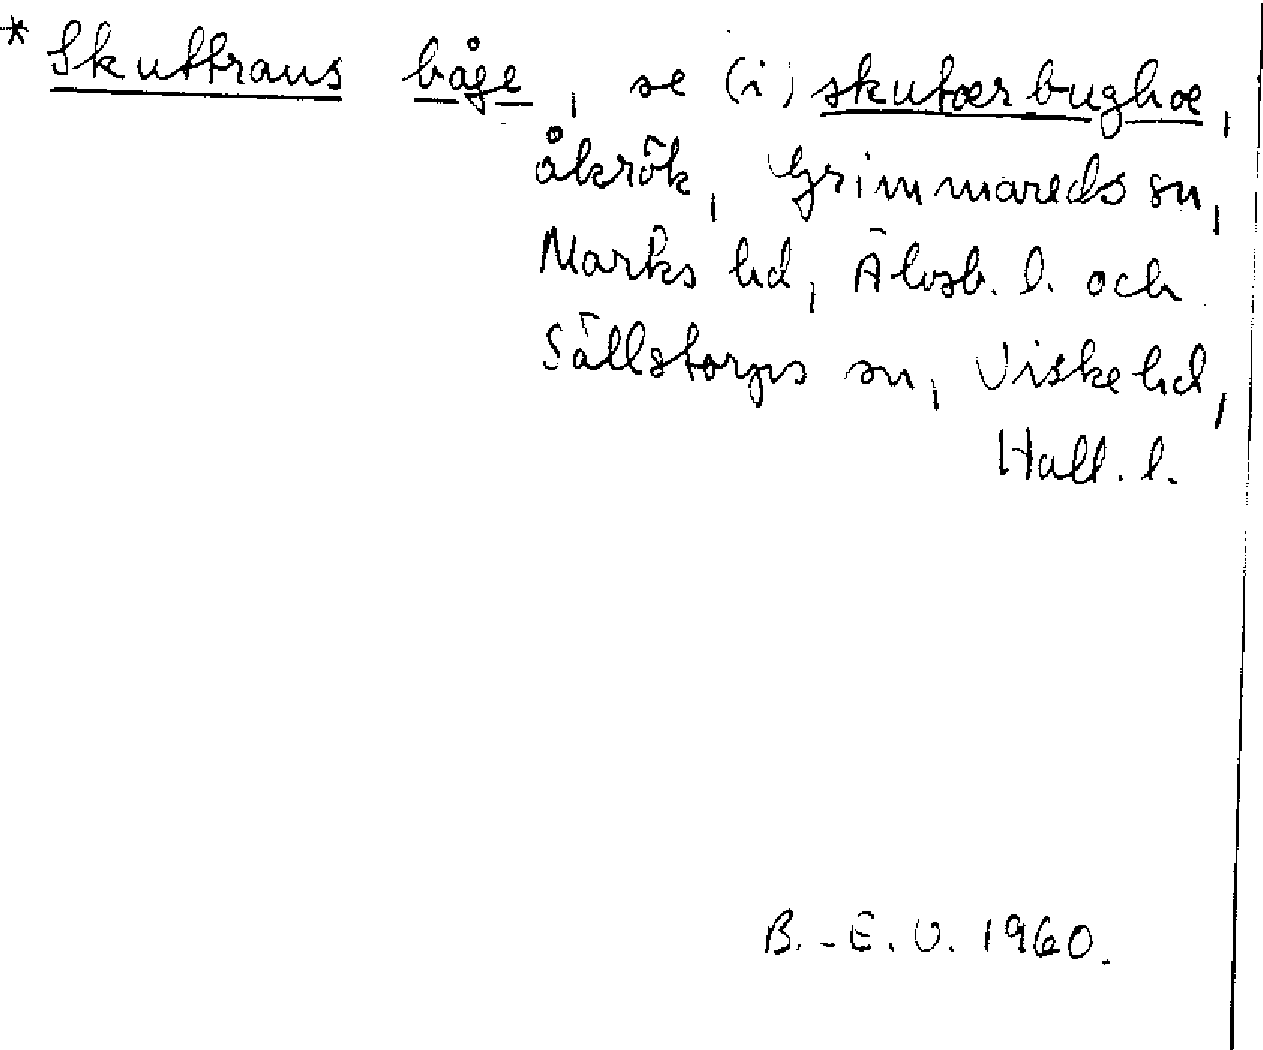 * Skuttrans båge, se (i) skutærbughæ,
åkrök, Grimmareds sn,
Marks hd, Älvsb. l. och
Sällstorps sn, Viske hd,
Hall. l.
B.-E. U. 1960.